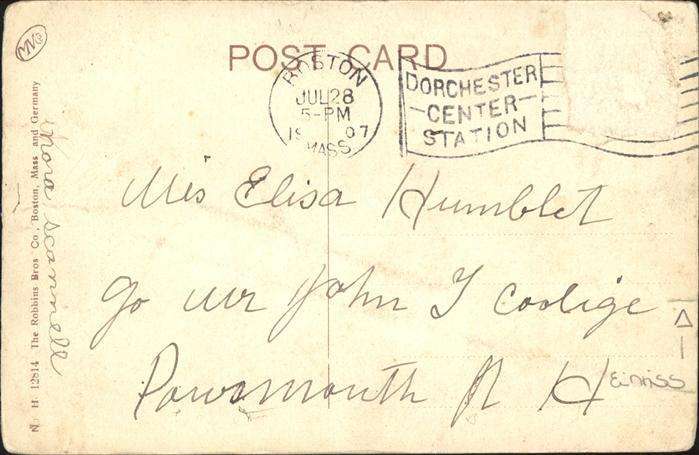 POST CARD
BOSTON
JUL 28
5-PM
19 07
MASS
DORCHESTER
CENTER
STATION
Mis Elisa Humblet
go mr John J coolige
Powsmouth N H
Nora Scannell
N H 12814 The Robbins Bros Co., Boston, Mass and Germany